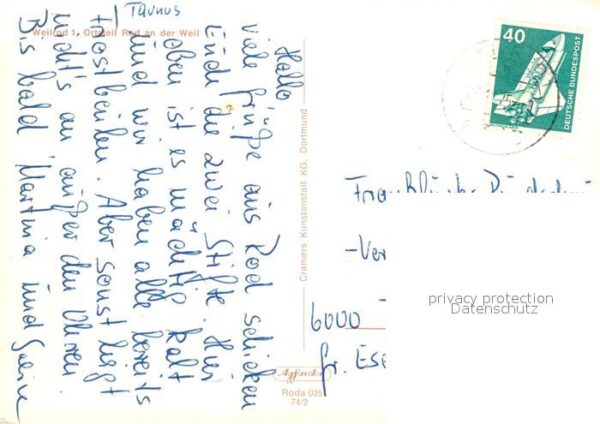 Taunus
Weilrod 1, Ortsteil Rod an der Weil
Hallo
viele Grüße aus Rod schicken
Euch die zwei Stifte. Hier
oben ist es mächtig kalt
und wir haben alle bereits
Frostbeulen. Aber sonst liegt
nicht's an außer den Ohren
Bis bald Martina und
Cramers Kunstanstalt KG, Dortmund
Roda 035
74/2
40
DEUTSCHE BUNDESPOST
Frau
-Ver
6000
Gr. Esc
privacy protection
Datenschutz